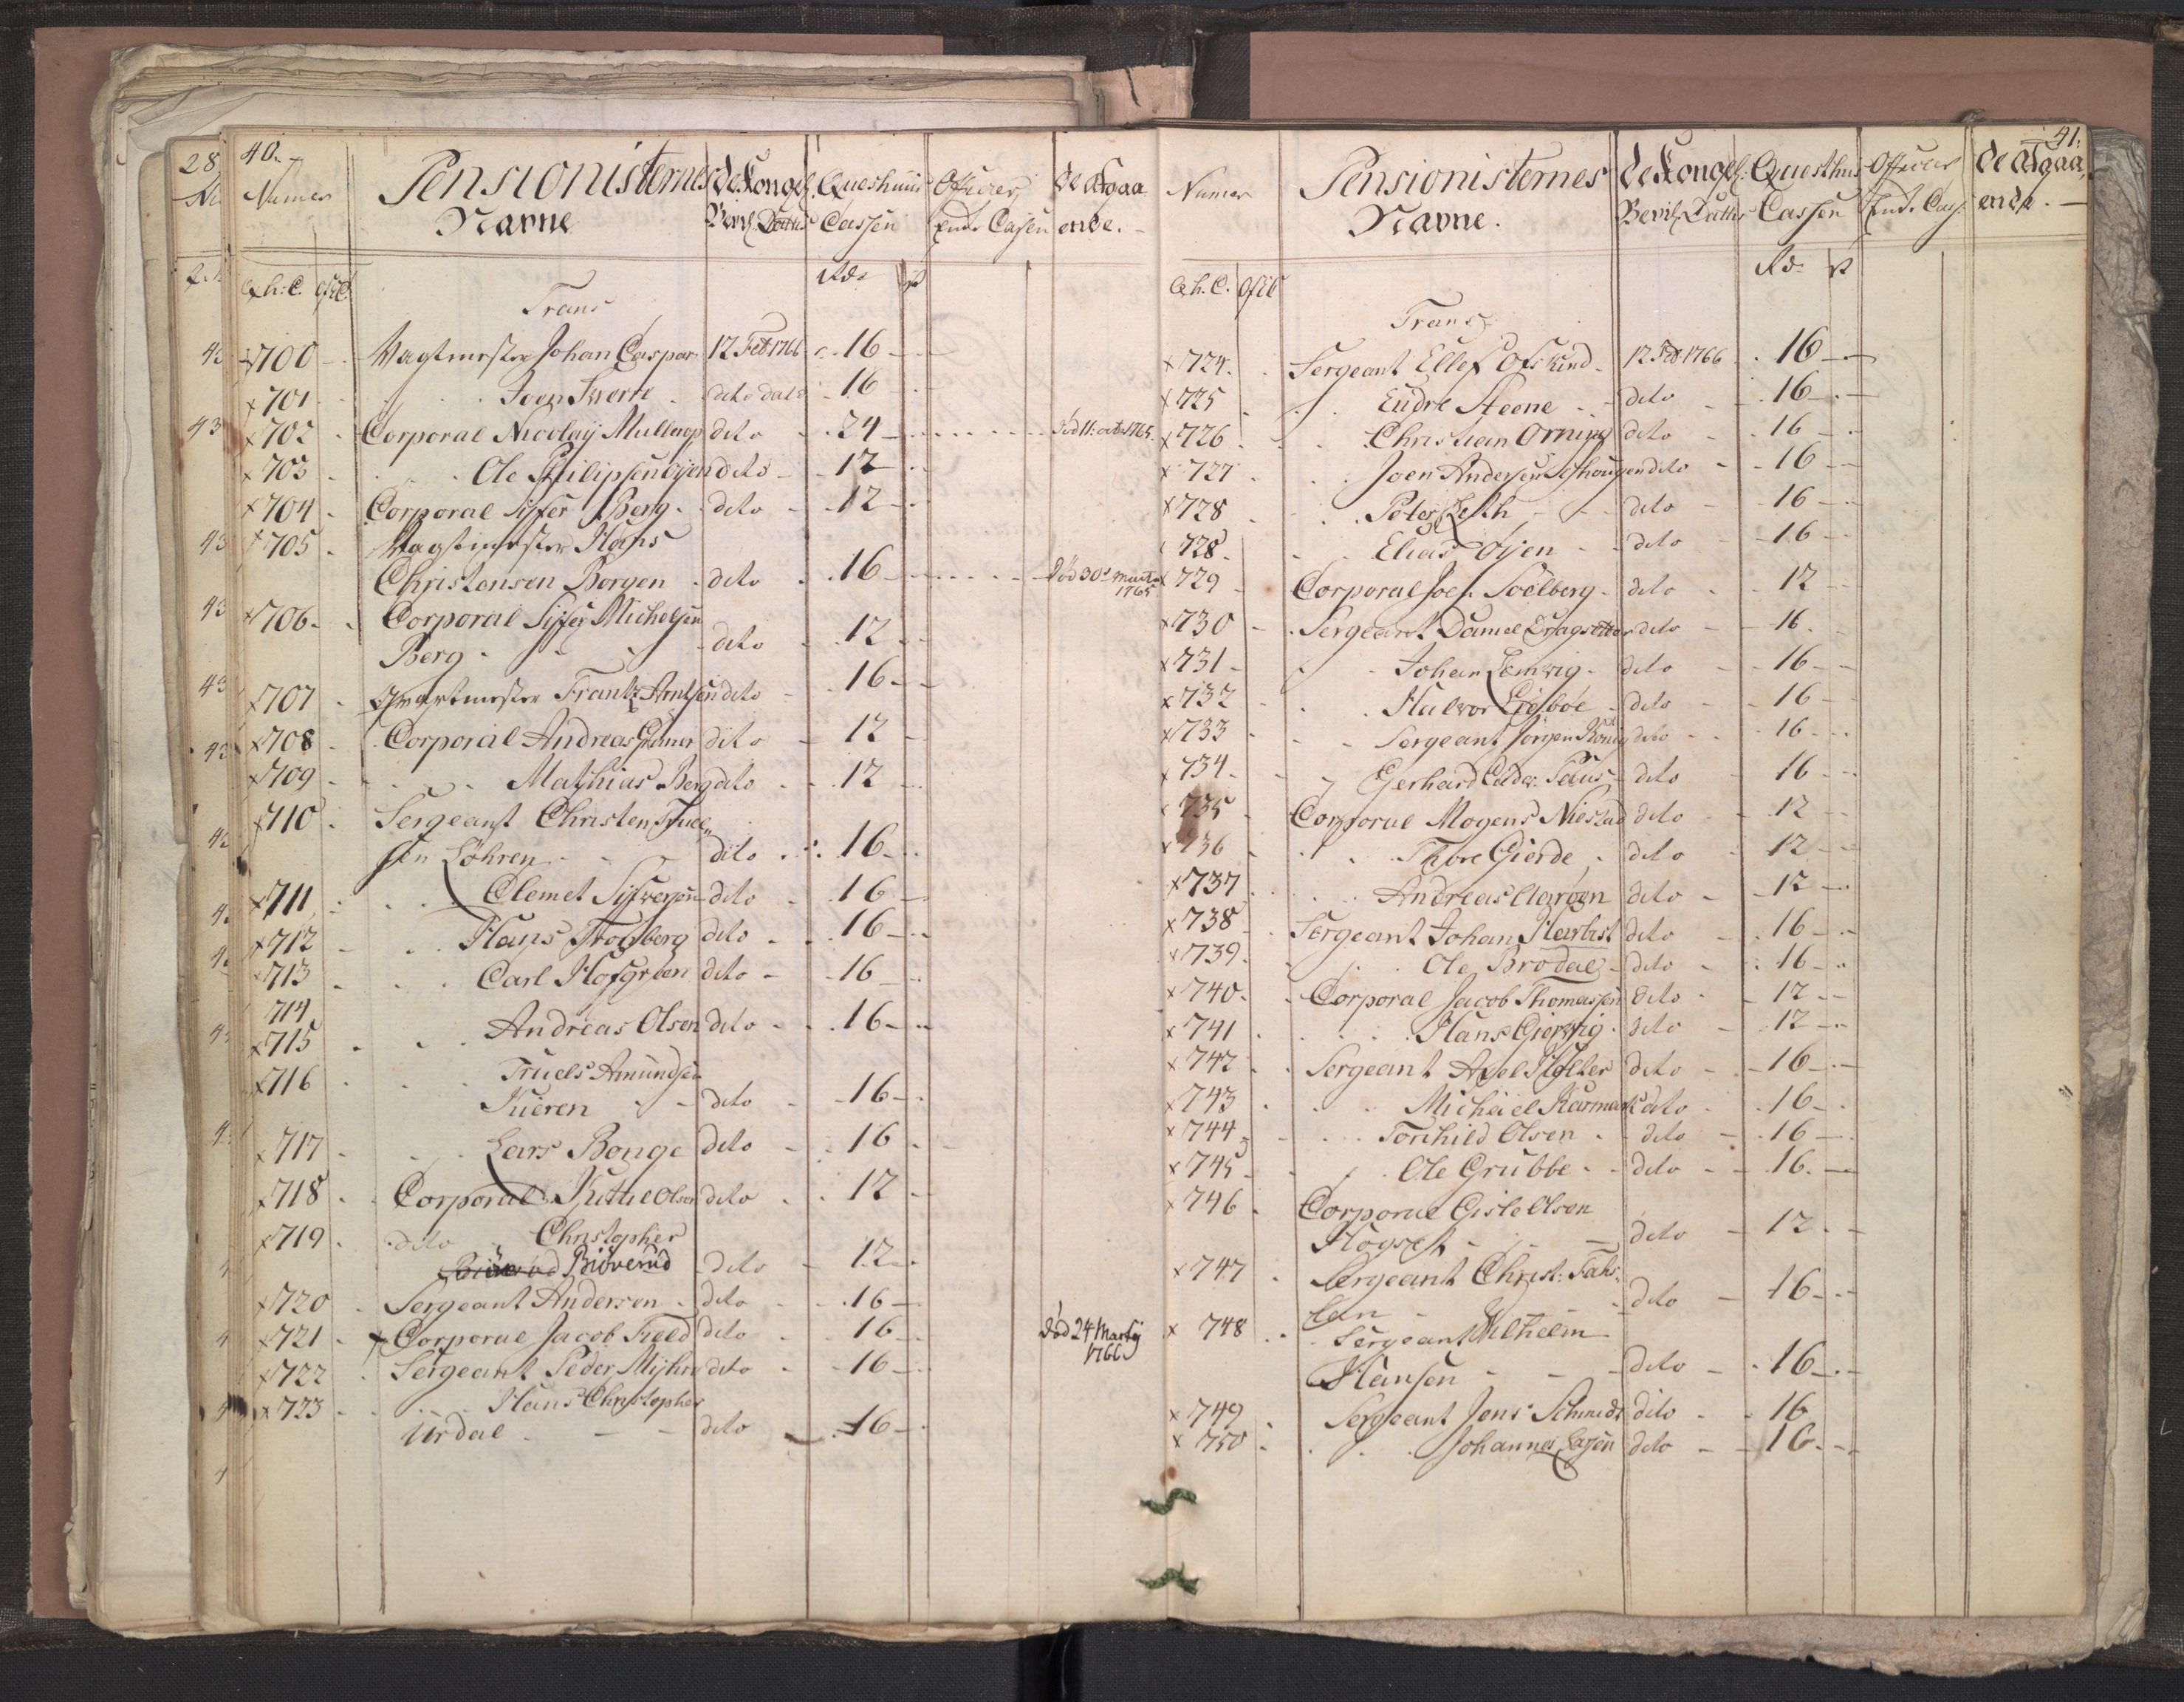 40.
Numer Pensionisternes De Kongel. Questhuus Officier De Afgaa
Navne Bevilg. Dattis Cassen Ende Cassen ende.
Qh: C. Ofic. Rd. s
Trans
700 Vagtmester Johan Caspar 12 Feb 1766 16
701 Joen Kverne dito dato 16
702 Corporal Nicolaÿ Mullerop dito 24 død 11: octr 1765.
703 Ole Philipsen Øÿen dito 12
704 Corporal Siffer Berg dito 12
705 Vagtmester Hans
Christensen Borgen dito 16 død 30t Martz
1765
706 Corporal Siffer Michelsen
Berg dito 12
707 Qvartmester Frantz Arntsen dito 16
708 Corporal Andreas Gramer dito 12
709 Mathias Berg dito 12
710 Sergeant Christen Truel
sen Løhren dito 16
711 Clemet Siffversøn dito 16
712 Hans Trogberg dito 16
713 Carl Hofgrøen dito 16
714
715 Andreas Olsen dito 16
716 Truels Amundsen
Kueren dito 16
717 Lars Bonge dito 16
718 Corporal Kittil Olsen dito 12
719 dito Christopher
Biøverud dito 12
720 Sergeant Andersen dito 16
721 Corporal Jacob Field dito 16 død 24 Martÿ
1766
722 Sergeant Peder Mÿhre dito 16
723 Hans Christopher
Urdal dito 16
41.
Numer Pensionisternes De Kongel: Questhus Officier De Afgaa
Navne. Bevilg. Dattis Cassen Ende Cass: ende.
Qh. C. Ofic Rd. s
Trans
724. Sergeant Ellef Ofstind 12 Feb 1766 16
725 Eudre Steene dito 16
726 Christian Orning dito 16
727 Joen Andersen Ashougen dito 16
728 Peter Lesth dito 16
728. Elias Øÿen dito 16
729 Corporal Joch. Soelberg dito 12
730 Sergeant Daniel Dragsetter dito 16
731 Johan Lemvig dito 16
732 Halvor Eidsboe dito 16
733 Sergeant Jörgen König dito 16
734 Gerhard Calder. Paus dito 16
735 Corporal Mogens Nieslad dito 12
736 Thore Gierde dito 12
737 Andreas Aagrøen dito 12
738 Sergeant Johan Harbst dito 16
739. Ole Brodal dito 16
740. Corporal Jacob Thomassen dito 12
741 Hans Giertzig dito 12
742 Sergeant Axel Holter dito 16
743 Michael Karmark dito 16
744 Torchild Olsen dito 16
745 Ole Grubbe dito 16
746 Corporal Gisle Olsen
Hogset dito 12
747 Sergeant Christ: Fahs
lan dito 16
748 Sergeant Wilhelm
Hansen dito 16
749 Sergeant Jens Schmidt dito 16
750 Johannes Lassen dito 16